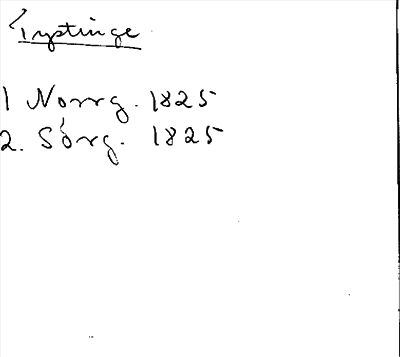 Tystinge
1 Norrg. 1825
2. Sörg. 1825